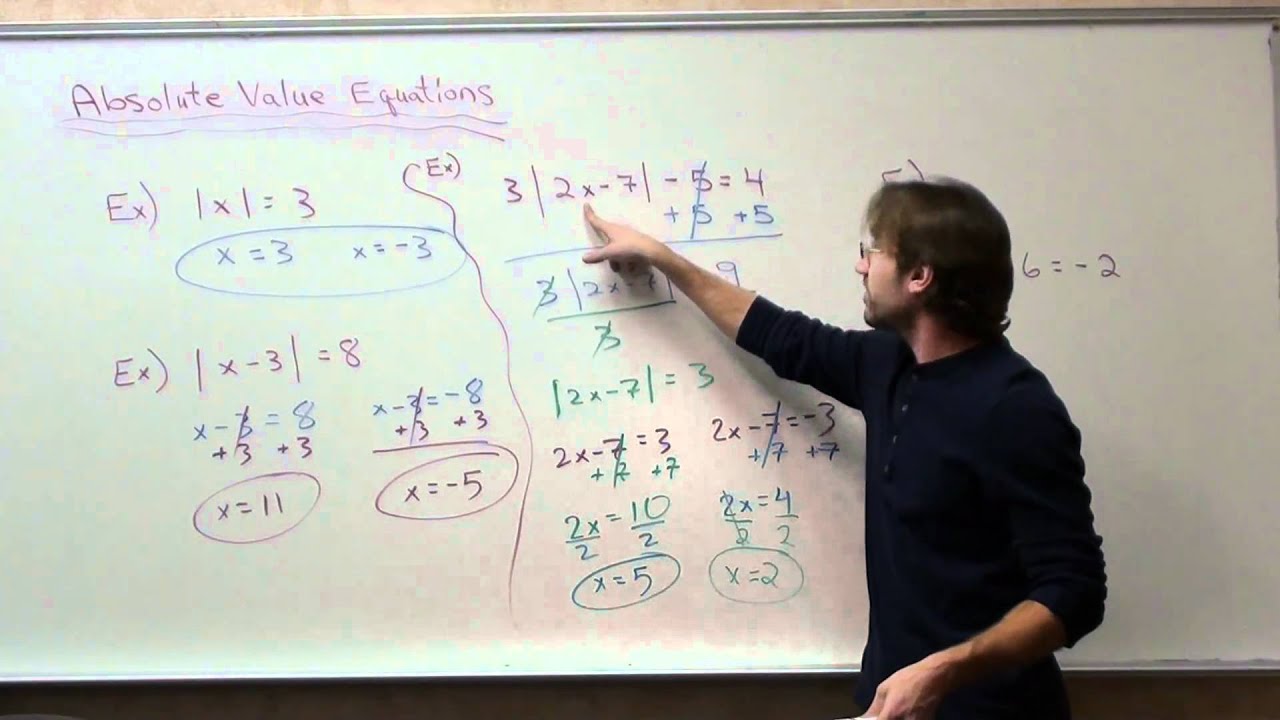 Absolute Value Equations
Ex) |x| = 3
x = 3 x = -3
Ex) |x-3| = 8
x-3 = 8 x-3 = -8
+3 +3 +3 +3
x = 11 x = -5
Ex) 3|2x-7| - 5 = 4
+5 +5
3|2x-7| 9
3
|2x-7| = 3
2x-7 = 3 2x-7 = -3
+7 +7 +7 +7
2x = 10 2x = 4
2 2 2 2
x = 5 x = 2
6 = -2